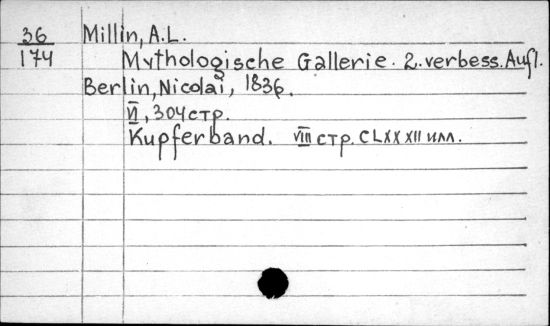 36 Millin, A.L.
174 Mythologische Gallerie. 2. verbess. Aufl.
Berlin, Nicolai, 1836.
VI, 304 стр.
Kupferband. VIII стр. CLXXXII илл.